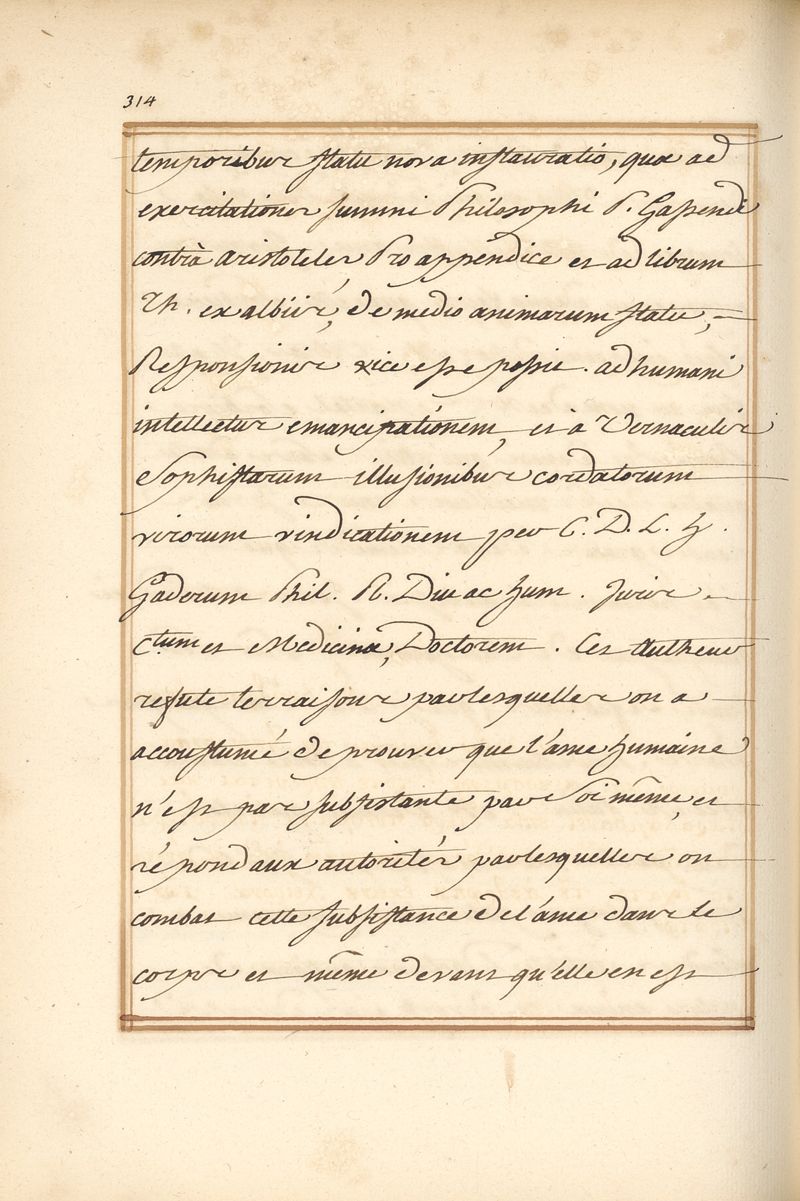 314
temporibus statu nova instauratio, quæ ad
exercitationes summi Philosophi P. Gassendi
contrà aristoteles Pro appendice et ad librum
Th. ex albiis, de medio animarum statu,
Responsionis vice esse possit. ad humani
intellectus emancipationem, et à Vernaculis
Sophistarum illusionibus cordatorum
virorum vindicationem per C. D. L. H.
Gaderum Phil. R. Div ac hum. Juris
Ctum et Medicinæ, Doctorem. Cet Autheur
refute les raisons par lesquelles on a
accoustumé de prouver que l'ame humaine
n'est pas subsistante par Soi même, et
répond aux autorités par lesquelles on
combat cette subsistance de l'ame dans le
corps et même devant qu'elle en est